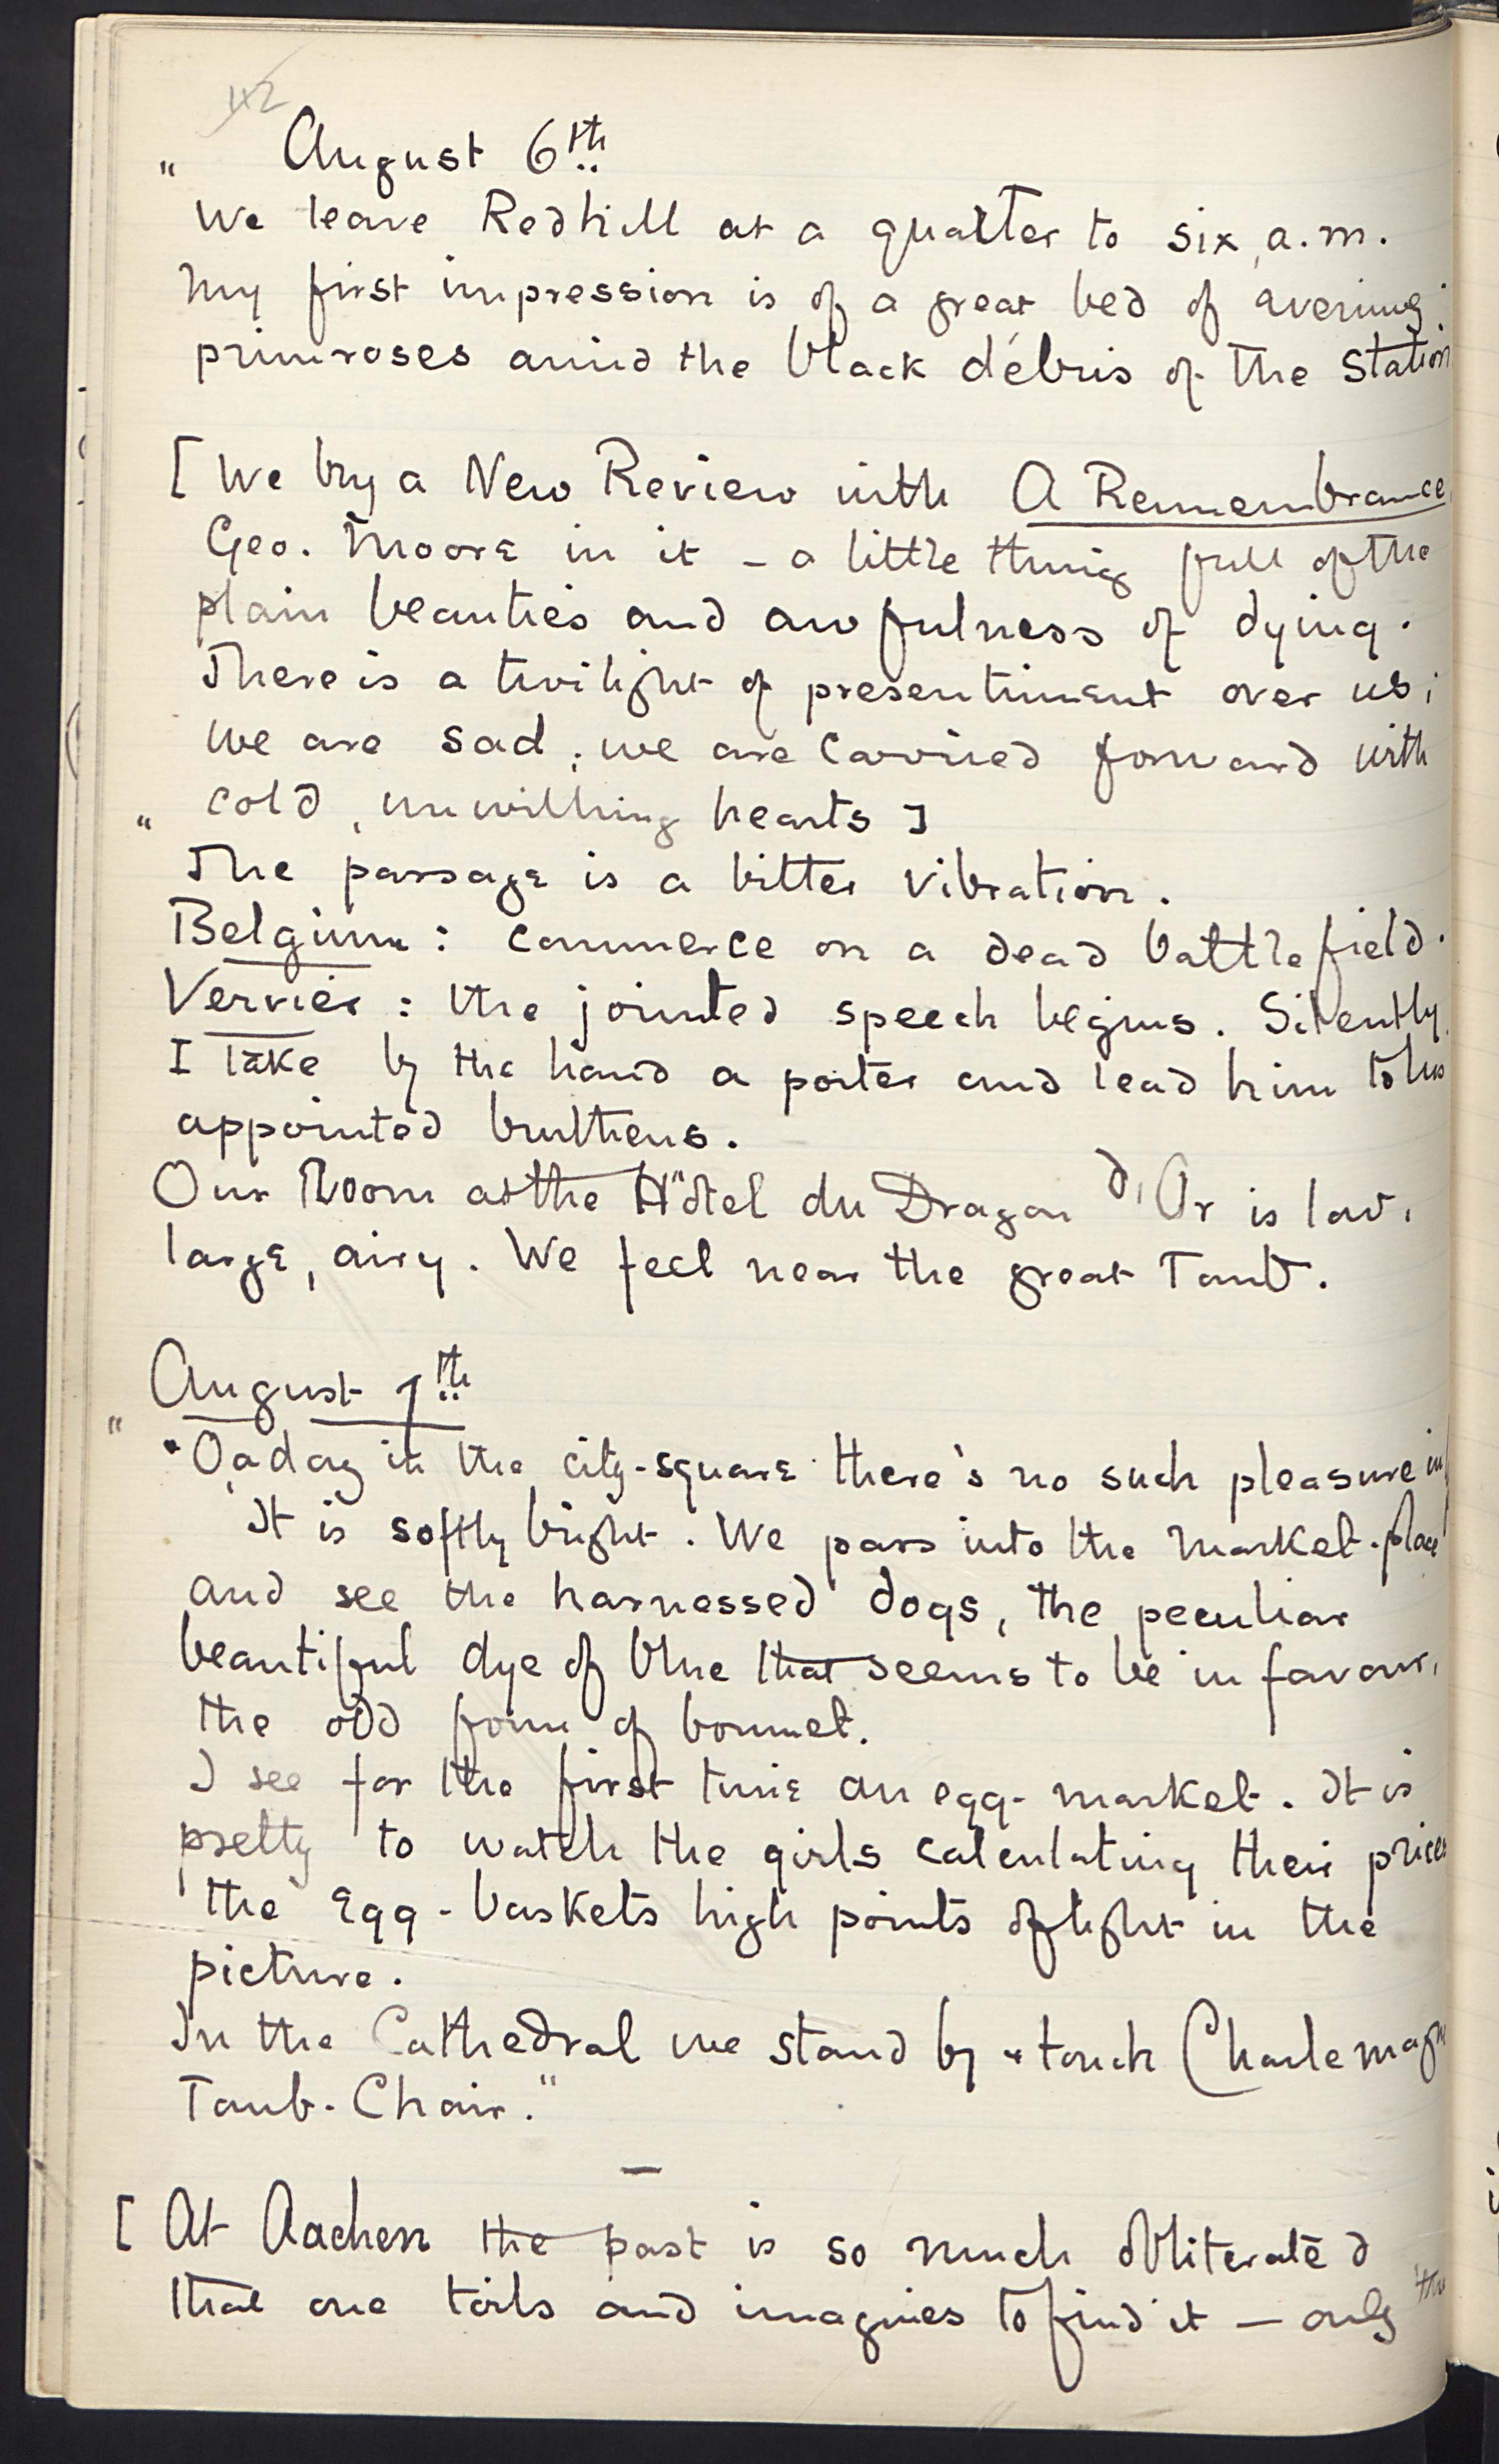 42
" August 6th
We leave Redhill at a quarter to six, a.m.
My first impression is of a great bed of evening
primroses amid the black débris of the Station
[We buy a New Review with A Remembrance
Geo. Moore in it – a little thing full of the
plain beauties and awfulness of dying.
There is a twilight of presentiment over us;
we are sad; we are carried forward with
" cold, unwilling hearts]
The passage is a bitter vibration.
Belgium: commerce on a dead battlefield.
Vervier: the jointed speech begins. Silently
I take by the hand a porter and lead him to his
appointed burthens.
Our Room at the Hôtel du Dragon d'Or is low,
large, airy. We feel near the great Tomb.
August 7th
" "O, a day in the city-square there's no such pleasure in
It is softly bright. We pass into the market-place
and see the harnessed dogs, the peculiar
beautiful dye of blue that seems to be in favour,
the odd form of bonnet.
I see for the first time an egg-market. It is
pretty to watch the girls calculating their prices
the egg-baskets high points of light in the
picture.
In the Cathedral we stand by & touch Charlemagne
Tomb-Chair."
[At Aachen the past is so much obliterated
that one toils and imagines to find it – only the